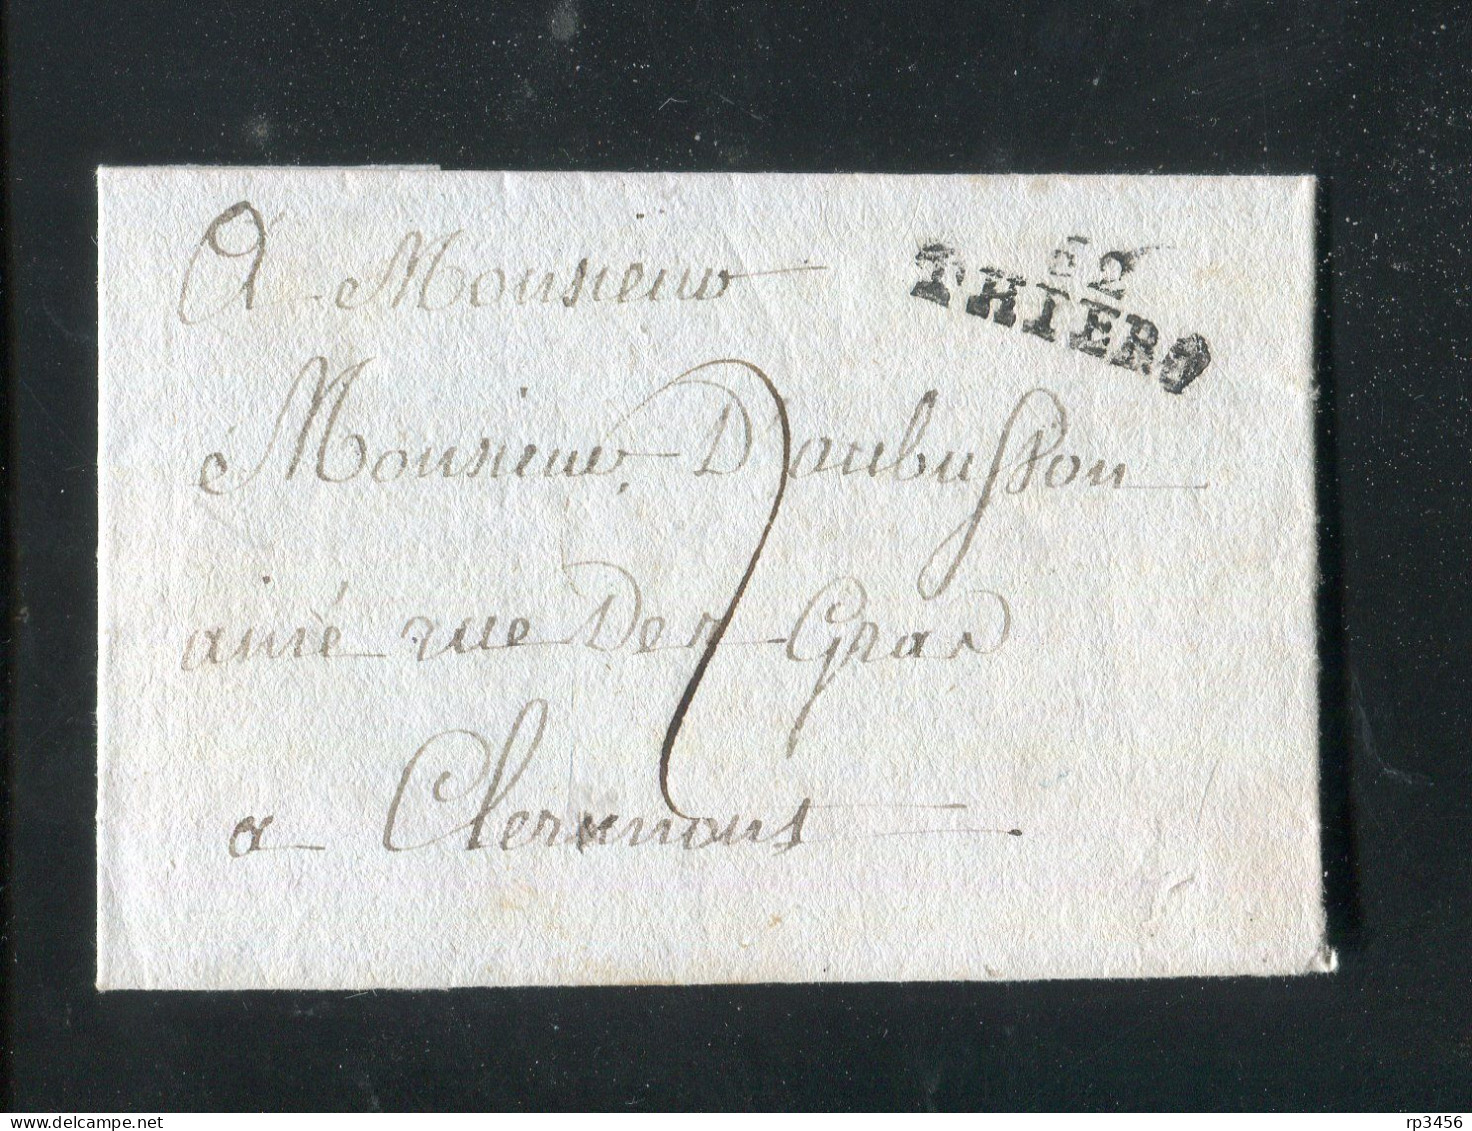 62
THIERS
A Monsieur
Monsieur Daubusson
ainé rue Des Gras
2
a Clermont
rp3456